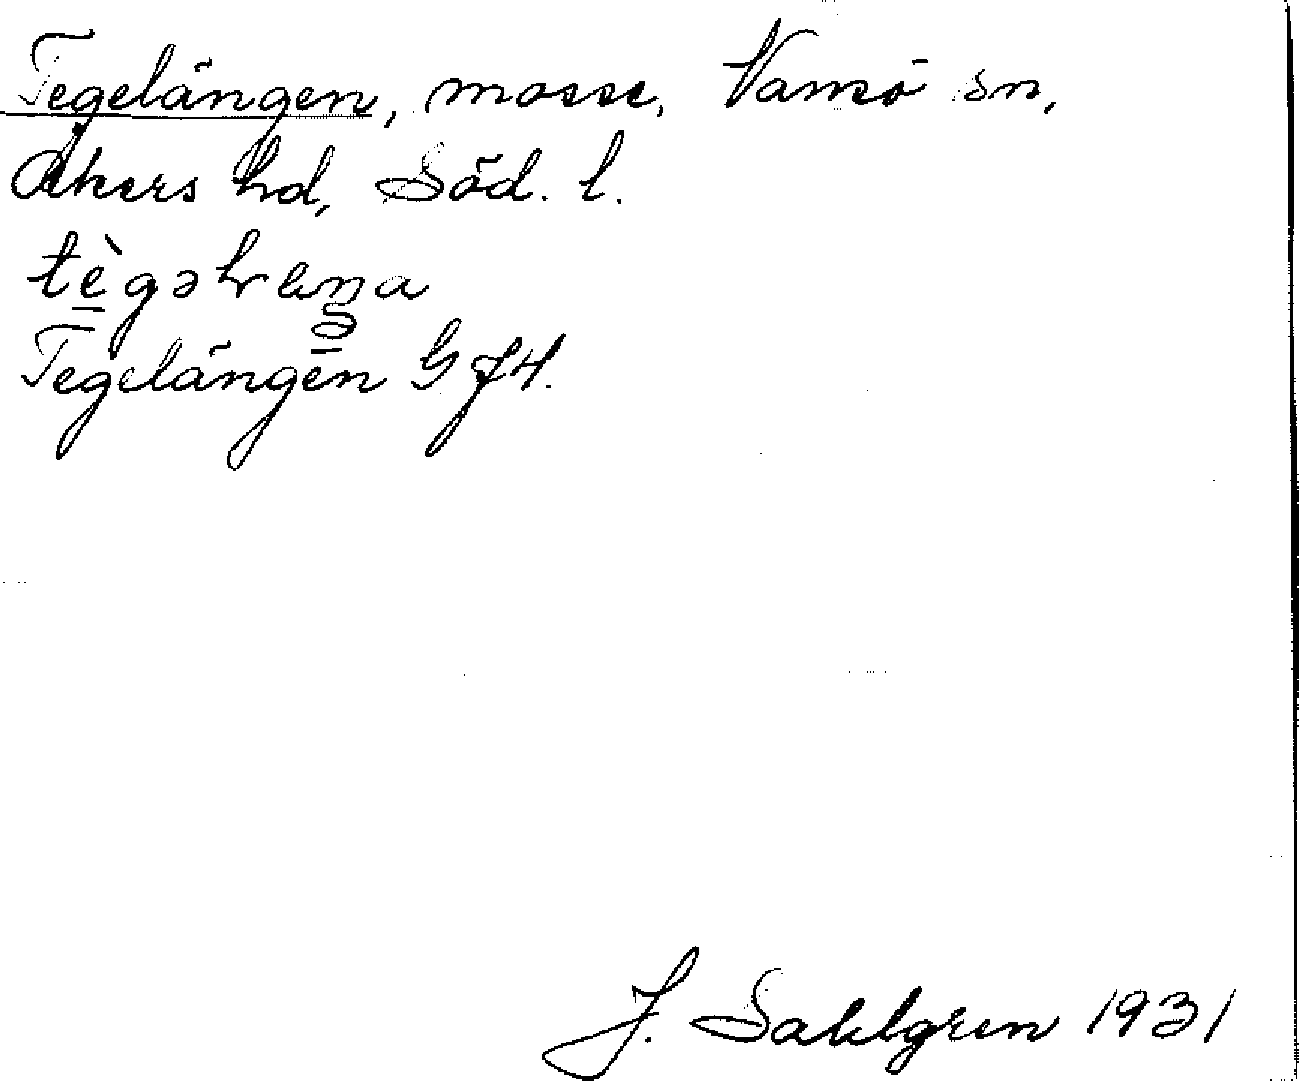 Tegelängen, mosse, Vansö sn,
Åkers hd, Söd. l.
Tegelängen G J4.
J. Sahlgren 1931